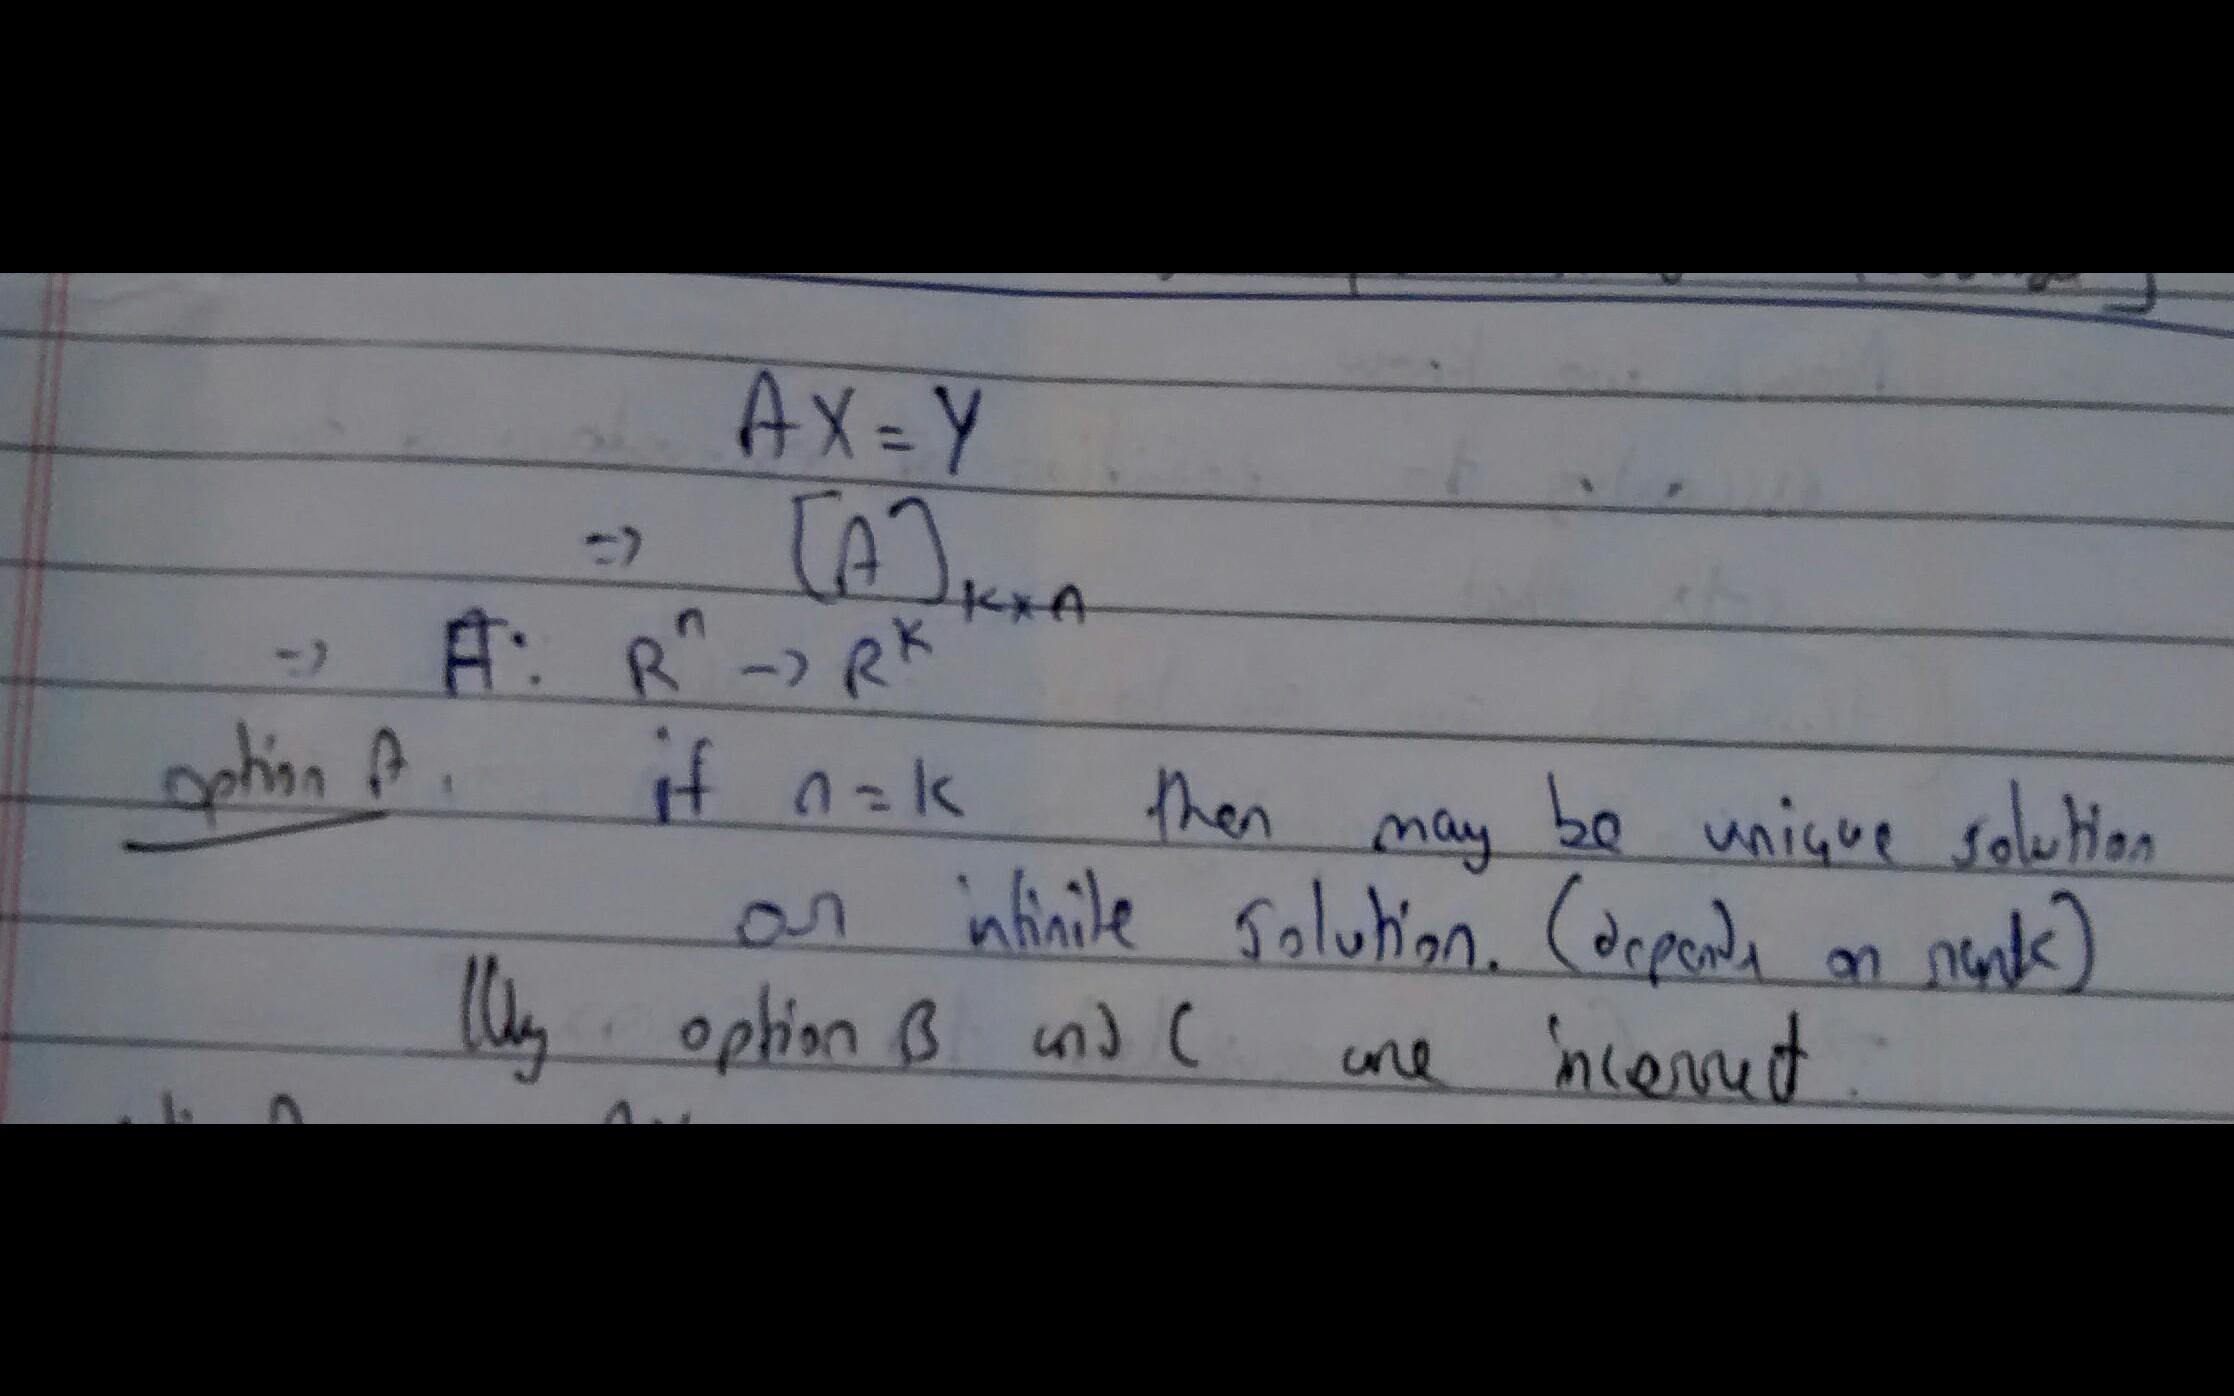 AX = Y
=> [A]k×n
=> A: R^n -> R^k
option A. if n = k then may be unique solution
or infinite solution. (depends on rank)
lllly option B and C are incorrect.